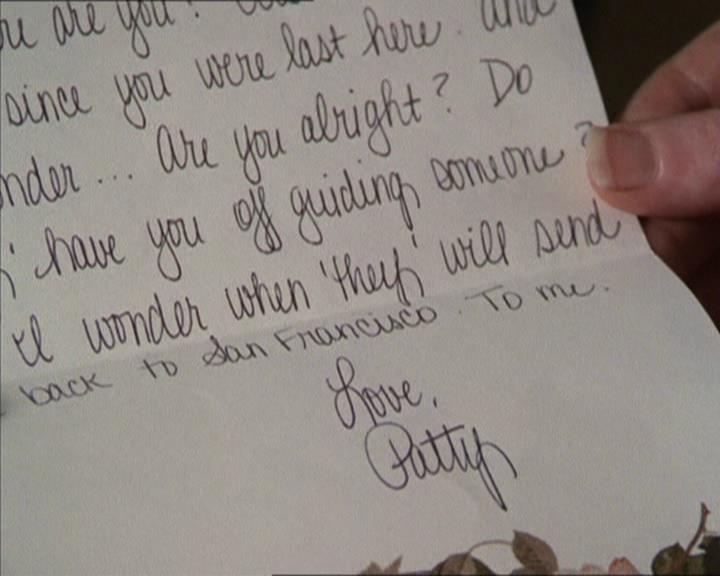 are you?
since you were last here. and
... are you alright? Do
have you off guiding someone?
wonder when 'they' will send
back to San Francisco. To me.
Love,
Patty